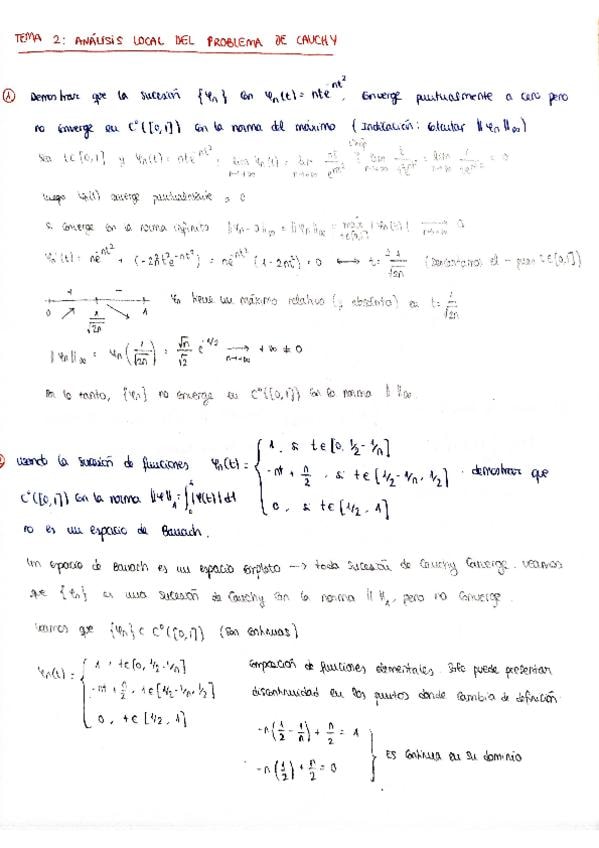 TEMA 2: ANÁLISIS LOCAL DEL PROBLEMA DE CAUCHY
① Demostrar que la sucesión {φn} con φn(t) = nte^-nt², converge puntualmente a cero pero
no converge en C⁰([0,1]) con la norma del máximo (Indicación: Calcular ||φn||∞)
Sea t∈[0,1] y φn(t) = nte^-nt²: lim φn(t) = lim nt/e^nt² = 0
luego φn(t) converge puntualmente a 0
Si converge en la norma infinito ||φn - 0||∞ = ||φn||∞ = max t∈[0,1] |φn(t)| → 0
φn'(t) = ne^-nt² + (-2n²t²e^-nt²) = ne^-nt² (1-2nt²) = 0 ⟷ t = ±1/√2n (Descartamos el - pues t∈[0,1])
+ -
0 1/√2n 1
φn tiene un máximo relativo (y absoluto) en t = 1/√2n
||φn||∞ = φn(1/√2n) = √n/√2 e^-1/2 → +∞ ≠ 0
n→+∞
Por lo tanto, {φn} no converge en C⁰([0,1]) con la norma || ||∞.
Usando la sucesión de funciones φn(t) = { 1, si t∈[0, 1/2 - 1/n]
-nt + n/2, si t∈[1/2 - 1/n, 1/2] . demostrar que
0, si t∈[1/2, 1]
C⁰([0,1]) con la norma ||φ||₁ = ∫₀¹ |φ(t)| dt
no es un espacio de Banach.
Un espacio de Banach es un espacio completo → toda sucesión de Cauchy converge. Veamos
que {φn} es una sucesión de Cauchy con la norma || ||₁, pero no converge.
Veamos que {φn} ⊂ C⁰([0,1]) (son continuas)
φn(t) = { 1, t∈[0, 1/2 - 1/n]
-nt + n/2, t∈[1/2 - 1/n, 1/2]
0, t∈[1/2, 1]
Composición de funciones elementales. Solo puede presentar
discontinuidad en los puntos donde cambia de definición
-n(1/2 - 1/n) + n/2 = 1
-n(1/2) + n/2 = 0
} Es continua en su dominio